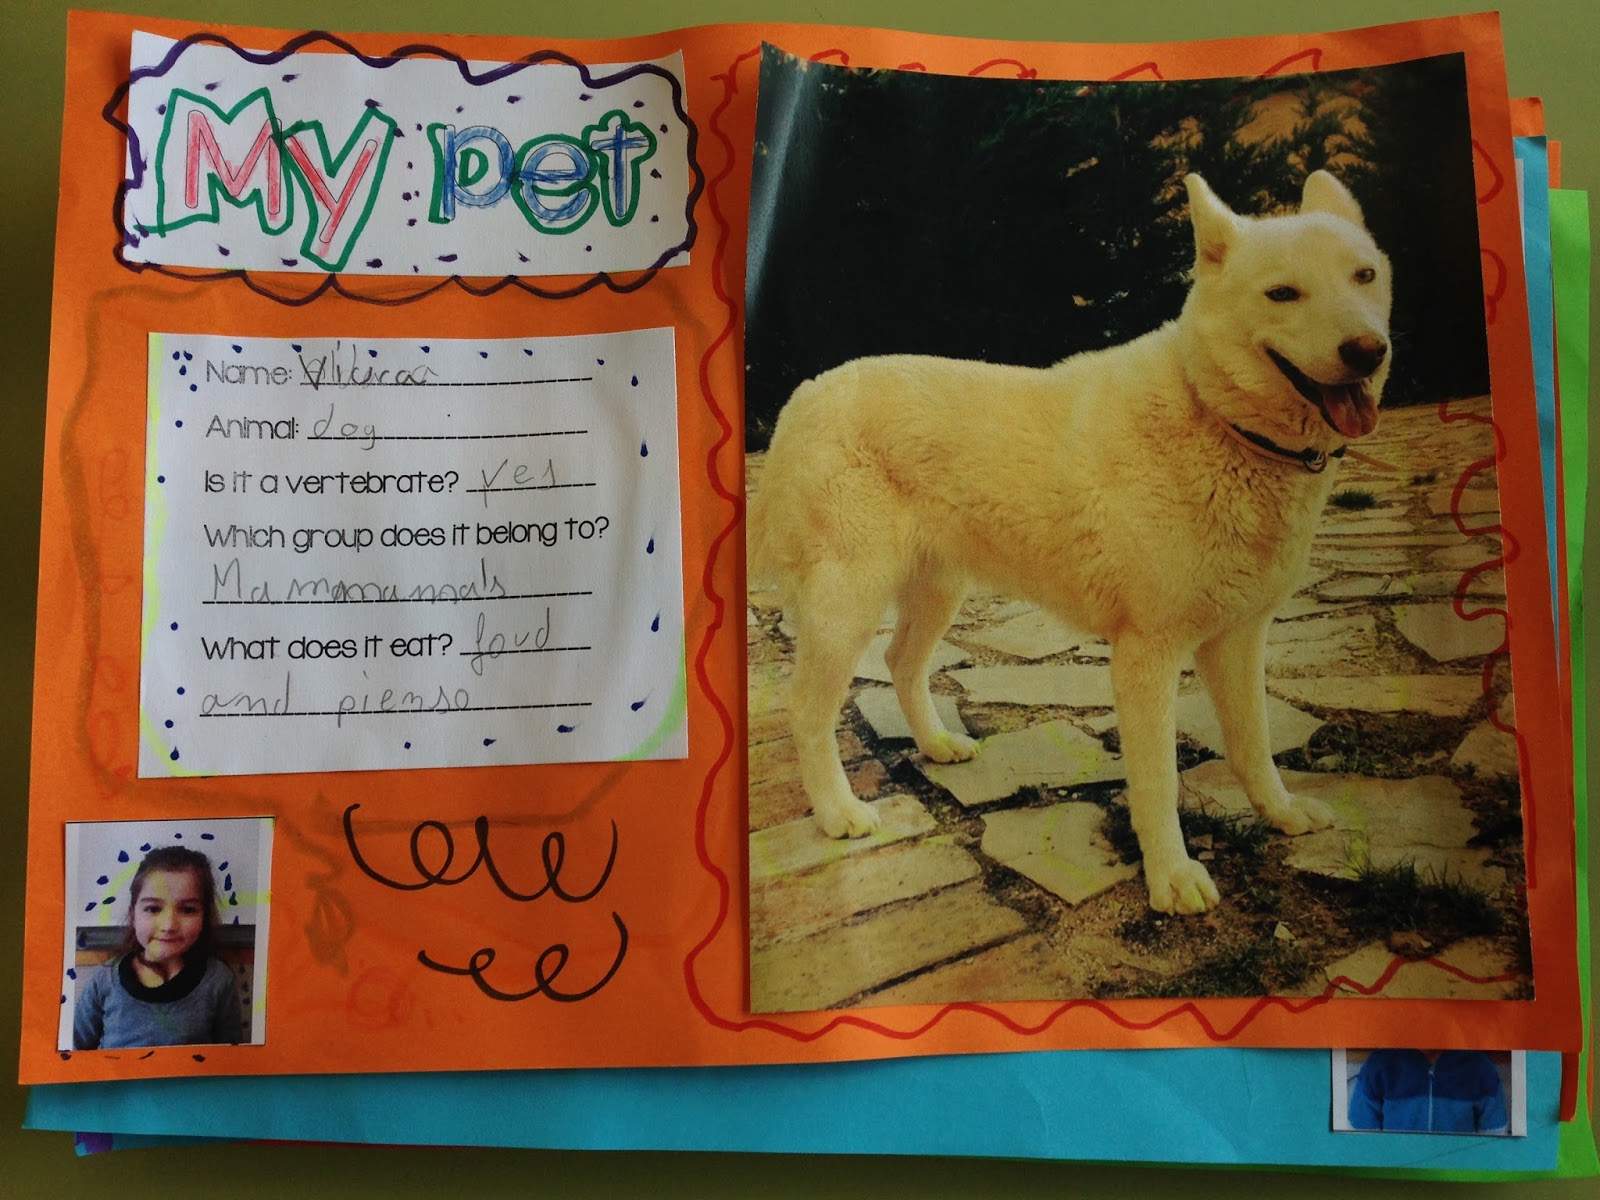 My pet
Name:
Animal: dog
Is it a vertebrate? yes
Which group does it belong to?
Mammamamals
What does it eat? foud
and pienso